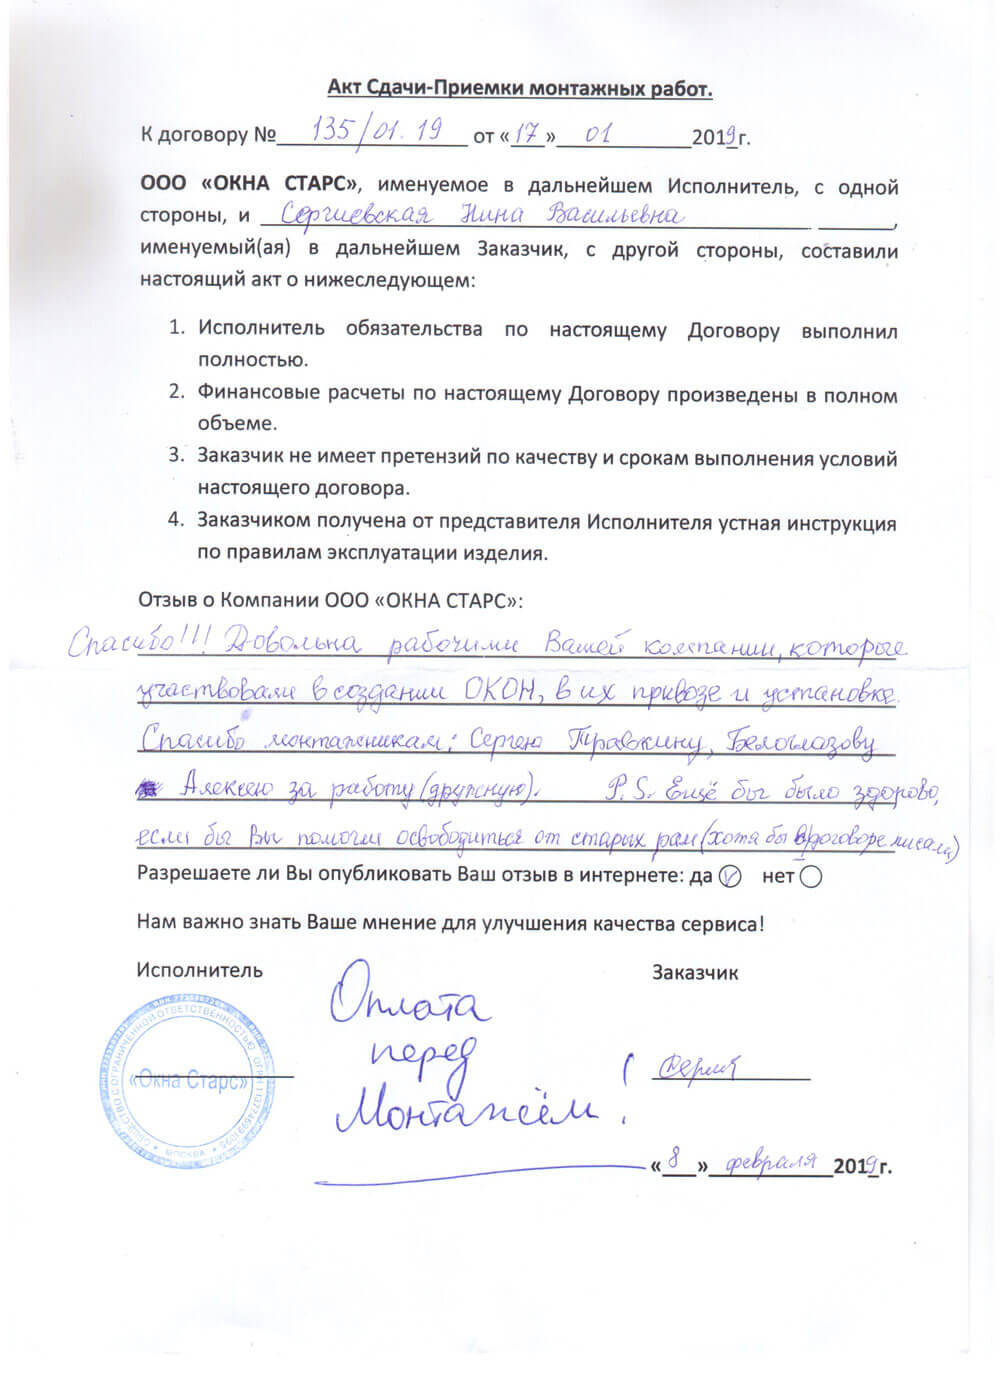 Акт Сдачи-Приемки монтажных работ.
К договору № 135/01.19 от «17» 01 2019 г.
ООО «ОКНА СТАРС», именуемое в дальнейшем Исполнитель, с одной
стороны, и Сергиевская Нина Васильевна ,
именуемый(ая) в дальнейшем Заказчик, с другой стороны, составили
настоящий акт о нижеследующем:
1. Исполнитель обязательства по настоящему Договору выполнил
полностью.
2. Финансовые расчеты по настоящему Договору произведены в полном
объеме.
3. Заказчик не имеет претензий по качеству и срокам выполнения условий
настоящего договора.
4. Заказчиком получена от представителя Исполнителя устная инструкция
по правилам эксплуатации изделия.
Отзыв о Компании ООО «ОКНА СТАРС»:
Спасибо!!! Довольна рабочими Вашей компании, которые
участвовали в создании ОКОН, в их привозе и установке.
Спасибо монтажникам: Сергею Травкину, Белоглазову
Алексею за работу (дружную). P.S. Ещё бы было здорово,
если бы Вы помогли освободиться от старых рам (хотя бы в договоре писали)
Разрешаете ли Вы опубликовать Ваш отзыв в интернете: да нет
Нам важно знать Ваше мнение для улучшения качества сервиса!
Исполнитель
Заказчик
Оплата
перед
Монтажём.
ОБЩЕСТВО С ОГРАНИЧЕННОЙ ОТВЕТСТВЕННОСТЬЮ
«Окна Старс»
МОСКВА
«8» февраля 2019 г.